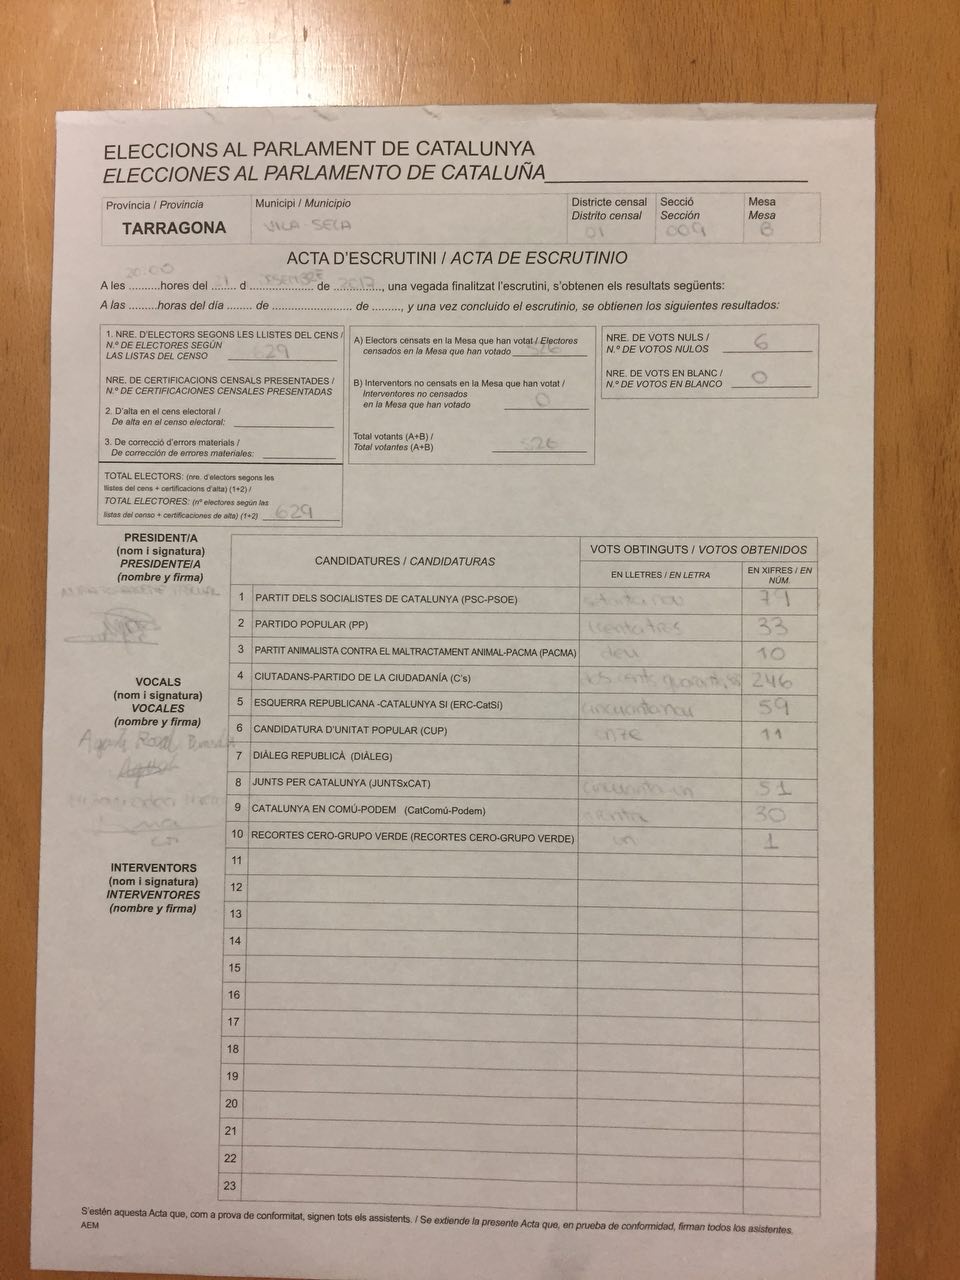 ELECCIONS AL PARLAMENT DE CATALUNYA
ELECCIONES AL PARLAMENTO DE CATALUÑA
Província / Provincia
TARRAGONA
Municipi / Municipio
VILA-SECA
Districte censal
Distrito censal
01
Secció
Sección
009
Mesa
Mesa
B
ACTA D'ESCRUTINI / ACTA DE ESCRUTINIO
20:00
A les ..........hores del ........ d ........................ de 2017, una vegada finalitzat l'escrutini, s'obtenen els resultats següents:
A las .........horas del día ........ de ......................... de ........., y una vez concluido el escrutinio, se obtienen los siguientes resultados:
1. NRE. D'ELECTORS SEGONS LES LLISTES DEL CENS /
N.º DE ELECTORES SEGÚN
LAS LISTAS DEL CENSO 629
NRE. DE CERTIFICACIONS CENSALS PRESENTADES /
N.º DE CERTIFICACIONES CENSALES PRESENTADAS
2. D'alta en el cens electoral /
De alta en el censo electoral:
3. De correcció d'errors materials /
De corrección de errores materiales:
TOTAL ELECTORS: (nre. d'electors segons les
llistes del cens + certificacions d'alta) (1+2) /
TOTAL ELECTORES: (nº electores según las
listas del censo + certificaciones de alta) (1+2) 629
A) Electors censats en la Mesa que han votat / Electores
censados en la Mesa que han votado 526
B) Interventors no censats en la Mesa que han votat /
Interventores no censados
en la Mesa que han votado 0
Total votants (A+B) /
Total votantes (A+B) 526
NRE. DE VOTS NULS /
N.º DE VOTOS NULOS 6
NRE. DE VOTS EN BLANC /
N.º DE VOTOS EN BLANCO 0
PRESIDENT/A
(nom i signatura)
PRESIDENTE/A
(nombre y firma)
VOCALS
(nom i signatura)
VOCALES
(nombre y firma)
INTERVENTORS
(nom i signatura)
INTERVENTORES
(nombre y firma)
CANDIDATURES / CANDIDATURAS
VOTS OBTINGUTS / VOTOS OBTENIDOS
EN LLETRES / EN LETRA
EN XIFRES / EN
NÚM.
1 PARTIT DELS SOCIALISTES DE CATALUNYA (PSC-PSOE) setanta nou 79
2 PARTIDO POPULAR (PP) trenta tres 33
3 PARTIT ANIMALISTA CONTRA EL MALTRACTAMENT ANIMAL-PACMA (PACMA) deu 10
4 CIUTADANS-PARTIDO DE LA CIUDADANÍA (C's) 246
5 ESQUERRA REPUBLICANA -CATALUNYA SI (ERC-CatSí) cincuanta nou 59
6 CANDIDATURA D'UNITAT POPULAR (CUP) onze 11
7 DIÀLEG REPUBLICÀ (DIÀLEG)
8 JUNTS PER CATALUNYA (JUNTSxCAT) cincuanta un 51
9 CATALUNYA EN COMÚ-PODEM (CatComú-Podem) trenta 30
10 RECORTES CERO-GRUPO VERDE (RECORTES CERO-GRUPO VERDE) un 1
11
12
13
14
15
16
17
18
19
20
21
22
23
S'estén aquesta Acta que, com a prova de conformitat, signen tots els assistents. / Se extiende la presente Acta que, en prueba de conformidad, firman todos los asistentes.
AEM